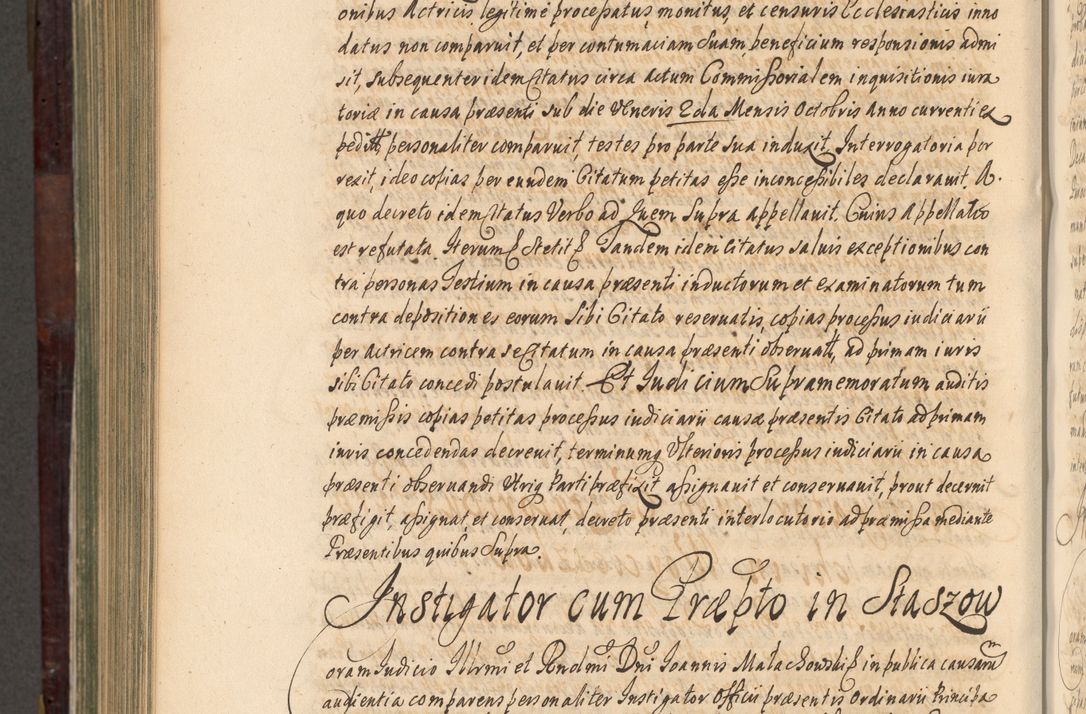 onibus Actricis legitime processatus monitus et censuris Ecclesiasticis inno
datus non comparuit, et per contumaciam suam beneficium responsionis admi
sit, subsequenter idem Citatus circa actum Commissorialem inquisitionis iura
toriæ in causa præsenti sub die Veneris 2da Mensis Octobris Anno currenti ex
peditt, personaliter comparuit, testes pro parte sua induxit, Interrogatoria por
rexit, ideo copias per eundem Citatum petitas esse inconcessibiles declarauit. A.
quo decreto idem Citatus Verbo ad Quem supra appellauit. Cuius Appellatio
est refutata. Iterum Stetit Tandem idem Citatus saluis exceptionibus con
tra personas Testium in causa præsenti inductorum et examinatorum tum
contra depositiones eorum sibi Citato reseruatis, copias processus iudiciarii
per Actricem contra se Citatum in causa præsenti obseruatt, ad primam iuris
sibi Citato concedi postulauit. Et Iudicium Supramemoratum auditis
præmissis copias petitas processus iudiciarii causæ præsentis Citato ad primam
iuris concedendas decreuit, terminumq Vlterioris processus iudiciarii in causa
præsenti obseruandi Vtriq Parti præfixit assignauit et conseruauit, prout decernit
præfigit, assignat, et conseruat, decreto præsenti interlocutorio ad præmissa mediante
Præsentibus quibus Supra.
Instigator cum Præpto in Staszow
oram Iudicio Illrmi et Rndmi Dni Ioannis Małachowski in publica causarum
audientia comparens personaliter Instigator Officii præsentis Ordinarii Principa